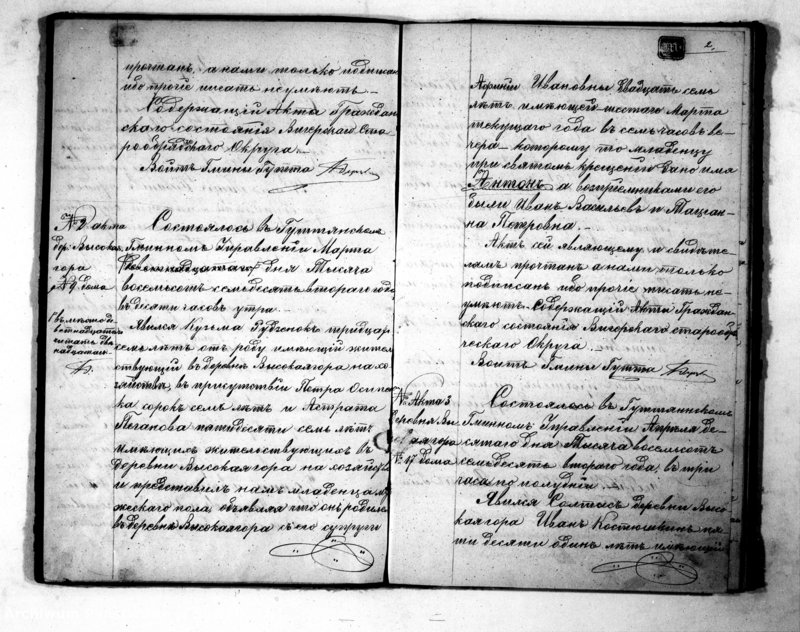 прочтанъ, а нами только подписанъ
ибо прочiе писать неумѣютъ.
Содержащiй Акта Граждан
скаго состоянiя Вигерскаго Ста
рообрядскаго Округа.
Войтъ Гмины Гутта
№ 2 акта
дер. Высокая
гора
№ 9 дома
Состоялось въ Гуттянскомъ
Гминномъ Управленiи Марта
дня Тысяча
восемьсотъ семьдесятъ втораго года
въ десяти часовъ утра.
Явился Кузьма тридцать
семь лѣтъ отъ роду имѣющiй жител
ствующiй въ деревнѣ Высокаягора на хо
зяйствѣ, въ присутствiи Петра Осипен
ка сорокъ семь лѣтъ и
пятидесяти семь лѣтъ
имѣющихъ жительствующихъ въ
деревни Высокаягора на хозяйствѣ
и представилъ намъ младенца му
жескаго пола объявляя что онъ родился
въ деревнѣ Высокаягора съ его супруги
2.
Ивановны двадцать семь
лѣтъ имѣющей шестаго Марта
текущаго года въ семь часовъ ве
чера. которому то младенцу
при святомъ крещенiи дано имя
Антонъ, а воспрiемниками его
были Иванъ Васильевъ и Татiан
на Петровна.
Актъ сей являющему и свидѣте
лямъ прочтанъ а нами только
подписанъ ибо прочiе писать не
умѣютъ. Содержащiй Акты Граждан
скаго состоянiя Вигерскаго старообря
ческаго Округа.
Войтъ Гмины Гутта
№ Акта 3
Деревня Вы
сокаягора
№ 17 дома
Состоялось въ Гуттянскомъ
Гминномъ Управленiи Апреля де
сятаго дня Тысяча восемьсотъ
семьдесятъ втораго года, въ три
часа по полудни.
Явился Солтысъ деревни Высо
каягора Иванъ Костюшкинъ пя
ти десяти одинъ лѣтъ имѣющiй